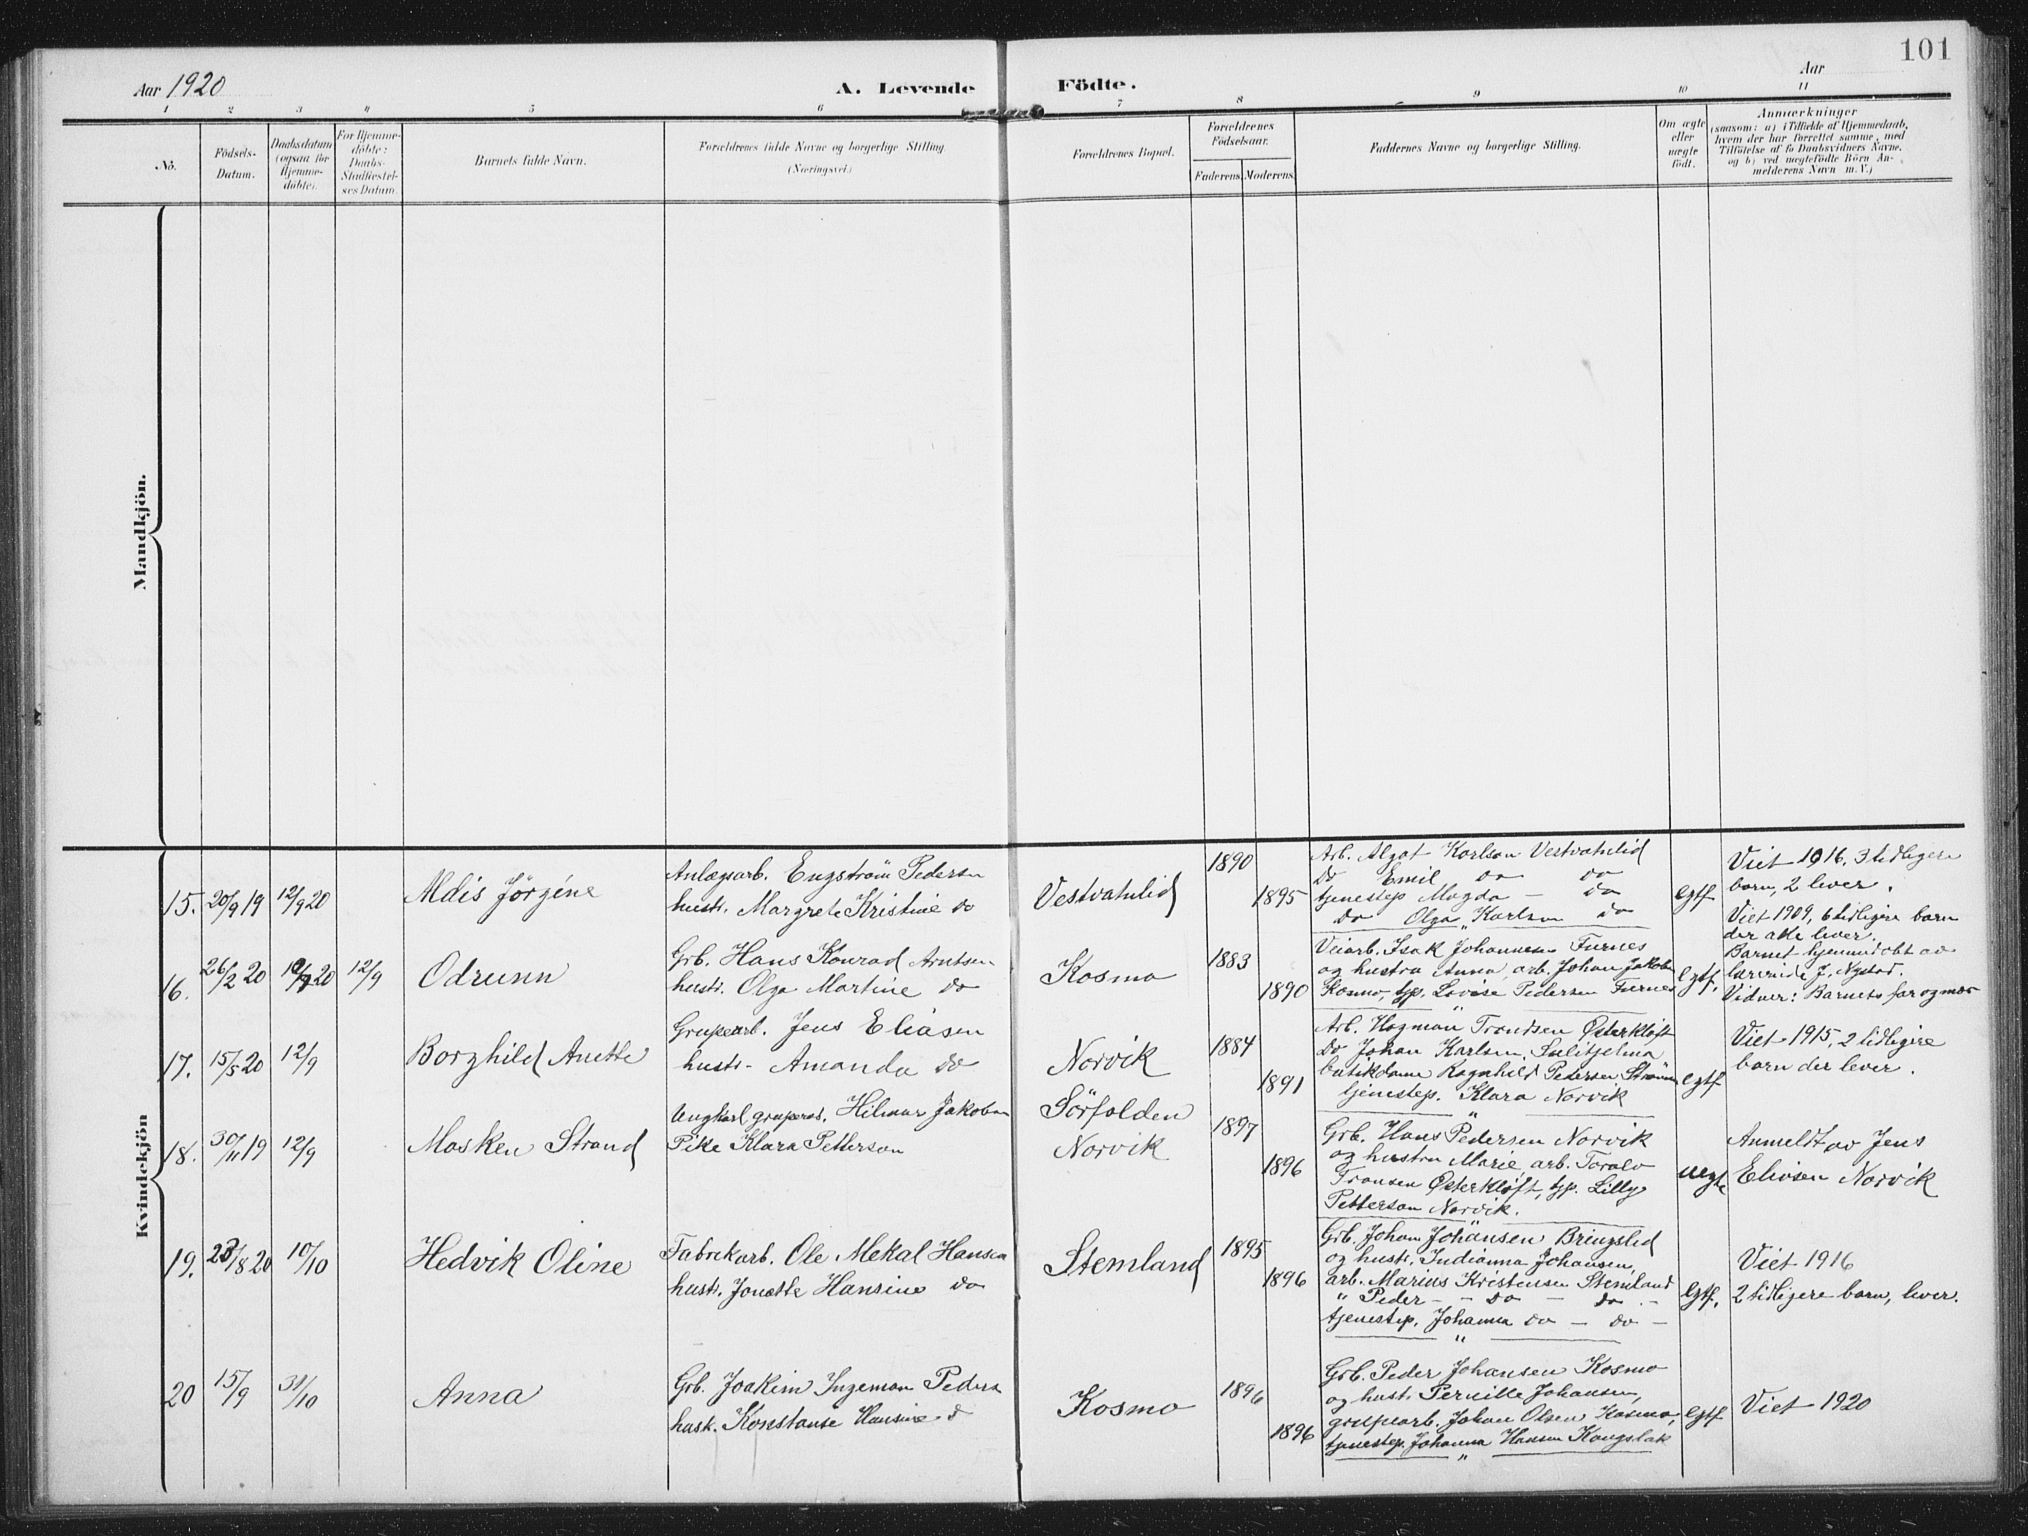 101
Aar 1920
A. Levende Födte.
Aar
1 2 3 4 5 6 7 8 9 10 11
No.
Födsels-
Datum.
Daabsdatum
(ogsaa for
Hjemme-
döbte).
For Hjemme-
döbte:
Daabs-
Stadfæstel-
ses Datum.
Barnets fulde Navn.
Forældrenes fulde Navne og borgerlige Stilling
(Næringsvei.)
Forældrenes Bopæl.
Forældrenes
Födselsaar.
Faderens. Moderens.
Faddernes Navne og borgerlige Stilling.
Om ægte
eller
uægte
födt.
Anmærkninger
(saasom: a) i Tilfælde af Hjemmedaab,
hvem der har forrettet samme, med
Tilföielse af to Daabsvidners Navne,
og b) ved uægtefödte Börn An-
melderens Navn m. V.)
Mandkjön.
Kvindekjön
15. 20/9 19 12/9 20
Aldis Jørgine
Anlægsarb. Engstrøm Pedersen
hustr. Margrete Kristine do
Vestvatnlid
1890
1895
Arb. Algot Karlson Vestvatnlid
do Emil do do
tjenestep Magda — do
do Olga Karlsen do
egtf
Viet 1916. 3 tidligere
barn, 2 lever.
16. 26/2 20 12/9 20 12/9
Odrunn
Grb. Hans Konrad Arntsen
hustr. Olga Martine do
Kosmo
1883
1890
Veiarb. Isak Johannesen Furnes
og hustru Anna, arb. Johan Jakobsen
Kosmo, tjp. Lovise Pedersen Furnes
egtf.
Viet 1909, 6 tidligere barn
der alle lever.
Barnet hjemmedøbt av
lærerinde J. Nystad.
Vidner: Barnets far og mor
17. 15/5 20 12/9
Borghild Anette
Grubearb. Jens Eliasen
hustr. Amanda do
Norvik
1884
1891
Arb. Hagman Trondsen Østerkløft
do Johan Karlsen, Sulitjelma
butikdame Ragnhild Pedersen Strømm
tjenestep. Klara Norvik
egtf
Viet 1915, 2 tidligere
barn der lever.
18. 30/11 19 12/9
Masken Strand
Ungkarl grubearb. Hilmar Jakobsen
Pike Klara Petterson
Sörfolden
Norvik
1897
1896
Grb. Hans Pedersen Norvik
og hustru Marie, arb. Toralv
Fransen Østerkløft, tjp. Lilly
Petterson Norvik.
uegte
Anmeldt av Jens
Eliasen Norvik
19. 28/8 20 10/10
Hedvik Oline
Fabrikarb. Ole Mekal Hansen
hustr. Jonette Hansine do
Stemland
1895
1896
Grb. Johan Johansen Bringslid
og hustr. Indianna Johansen,
arb. Marius Kristensen Stemland
" Peder — do — do —
tjenestep. Johanna do — do —
egtf.
Viet 1916
2 tidligere barn, lever.
20 15/9 31/10
Anna
Grb. Joakim Ingeman Peders
hustr. Konstanse Hansine d
Kosmo
1896
1896
Grb. Peder Johansen Kosmo
og hustr. Pernille Johansen,
grubearb. Johan Olsen Kosmo,
tjenestep. Johanna Hansen Kongsbak
egtf
Viet 1920